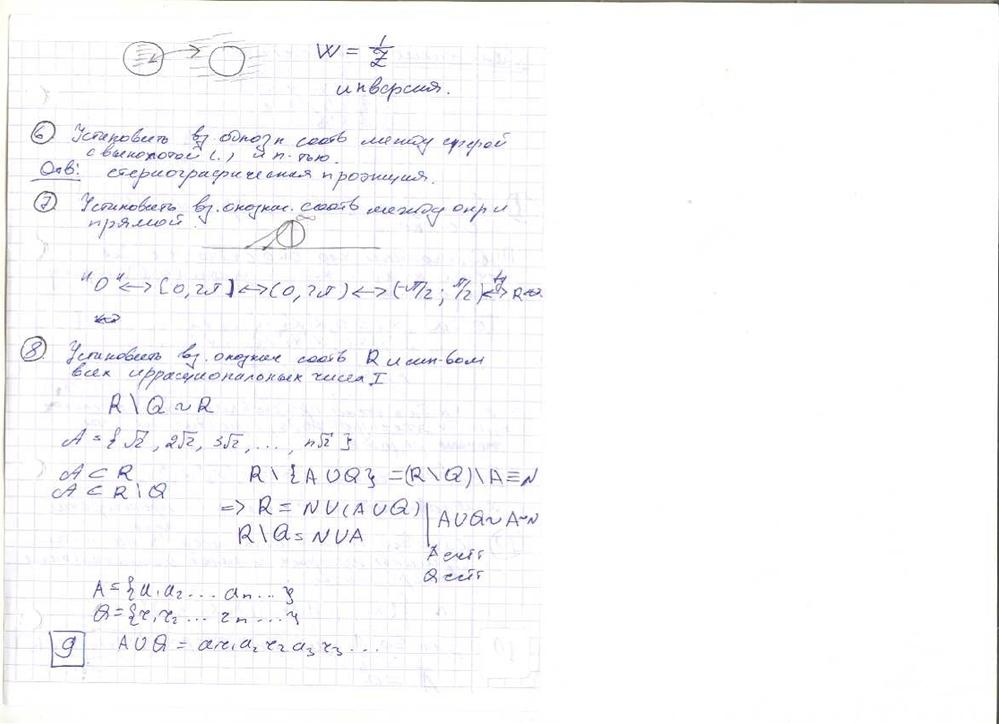 W = 1/Z
инверсия.
⑥ Установить вз. однозн соотв между сферой
с выколотой (.) и п-тью.
Отв: стериографическая проэкция.
⑦ Установить вз. однозн. соотв между окр и
прямой.
∞
"O" ↔ [0, 2π] ↔ (0, 2π) ↔ (-π/2; π/2) ↔ R
⑧ Установить вз. однозн соотв R и мн-вом
всех иррациональных чисел I
R \ Q ~ R
A = {√2, 2√2, 3√2, ..., n√2}
A ⊂ R
A ⊂ R \ Q
R \ {A ∪ Q} = (R \ Q) \ A ≡ N
=> R = N ∪ (A ∪ Q) | A ∪ Q ~ A ~ N
R \ Q = N ∪ A
A счёт
Q счёт
A = {a₁ a₂ ... aₙ ...}
Q = {r₁ r₂ ... rₙ ...}
9
A ∪ Q = a₁ r₁ a₂ r₂ a₃ r₃ ...